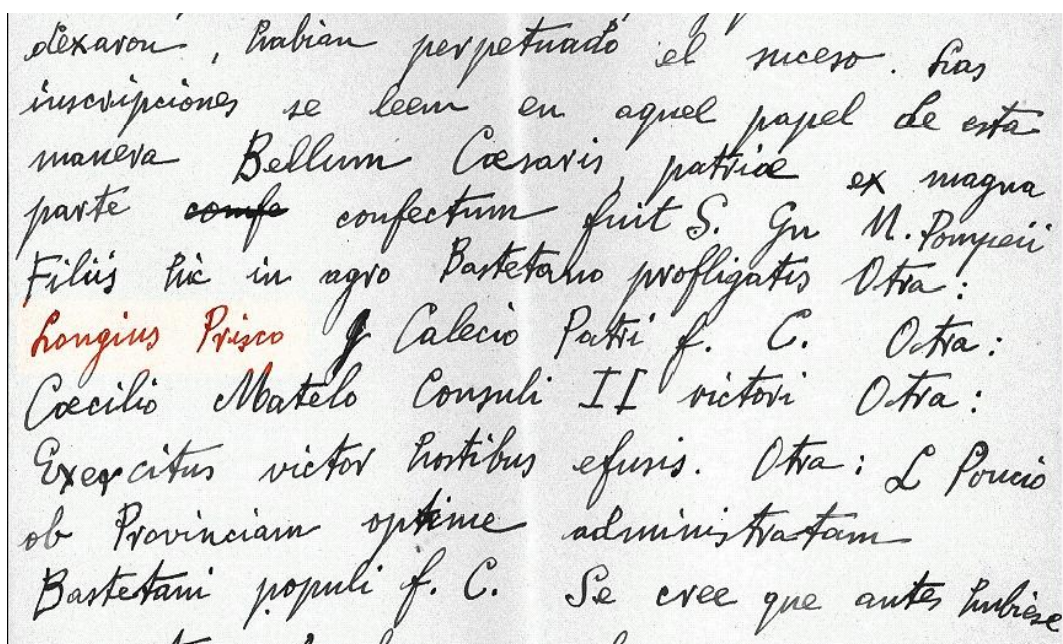 dexaron, habian perpetuado el suceso. Las
inscripciones se leem en aquel papel de esta
manera Bellum Cæsaris, patriæ ex magna
parte comfe confectum fuit S. Gn M. Pompeii
Filiis hic in agro Bastetano profligatis Otra:
Longius Prisco Calecio Patri f. C. Otra:
Cæcilio Matelo Consuli II victori Otra:
Exercitus victor hostibus efusis. Otra: L Poncio
ob Provinciam optime administratam
Bastetani populi f. C. Se cree que antes hubiese